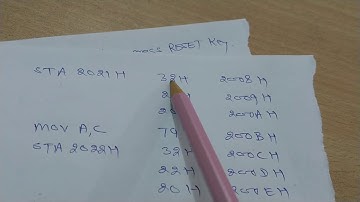 RESET Key
STA 2021H 32H 2008H
2009H
200AH
MOV A,C 79 200BH
STA 2022H 32H 200CH
22H 200DH
20H 200EH